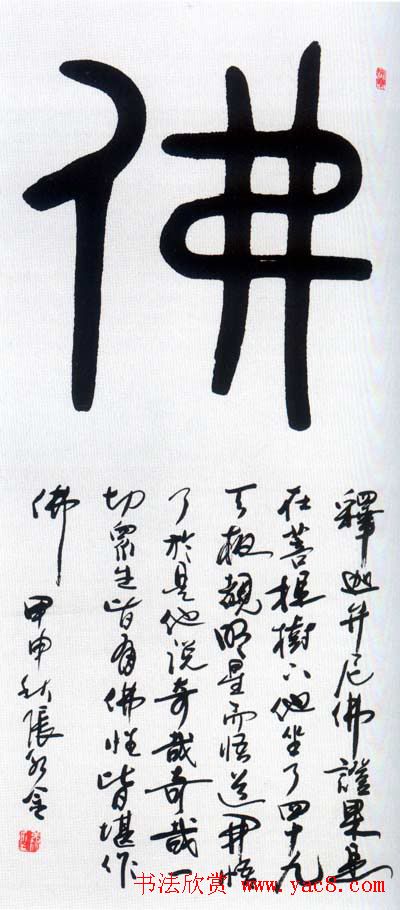 佛
釋迦牟尼佛證果是
在菩提樹下他坐了四十九
天夜覩明星而悟道開悟
了於是他说奇哉奇哉一
切眾生皆有佛性皆堪作
佛 甲申秋張
书法欣赏 www.yac8.com